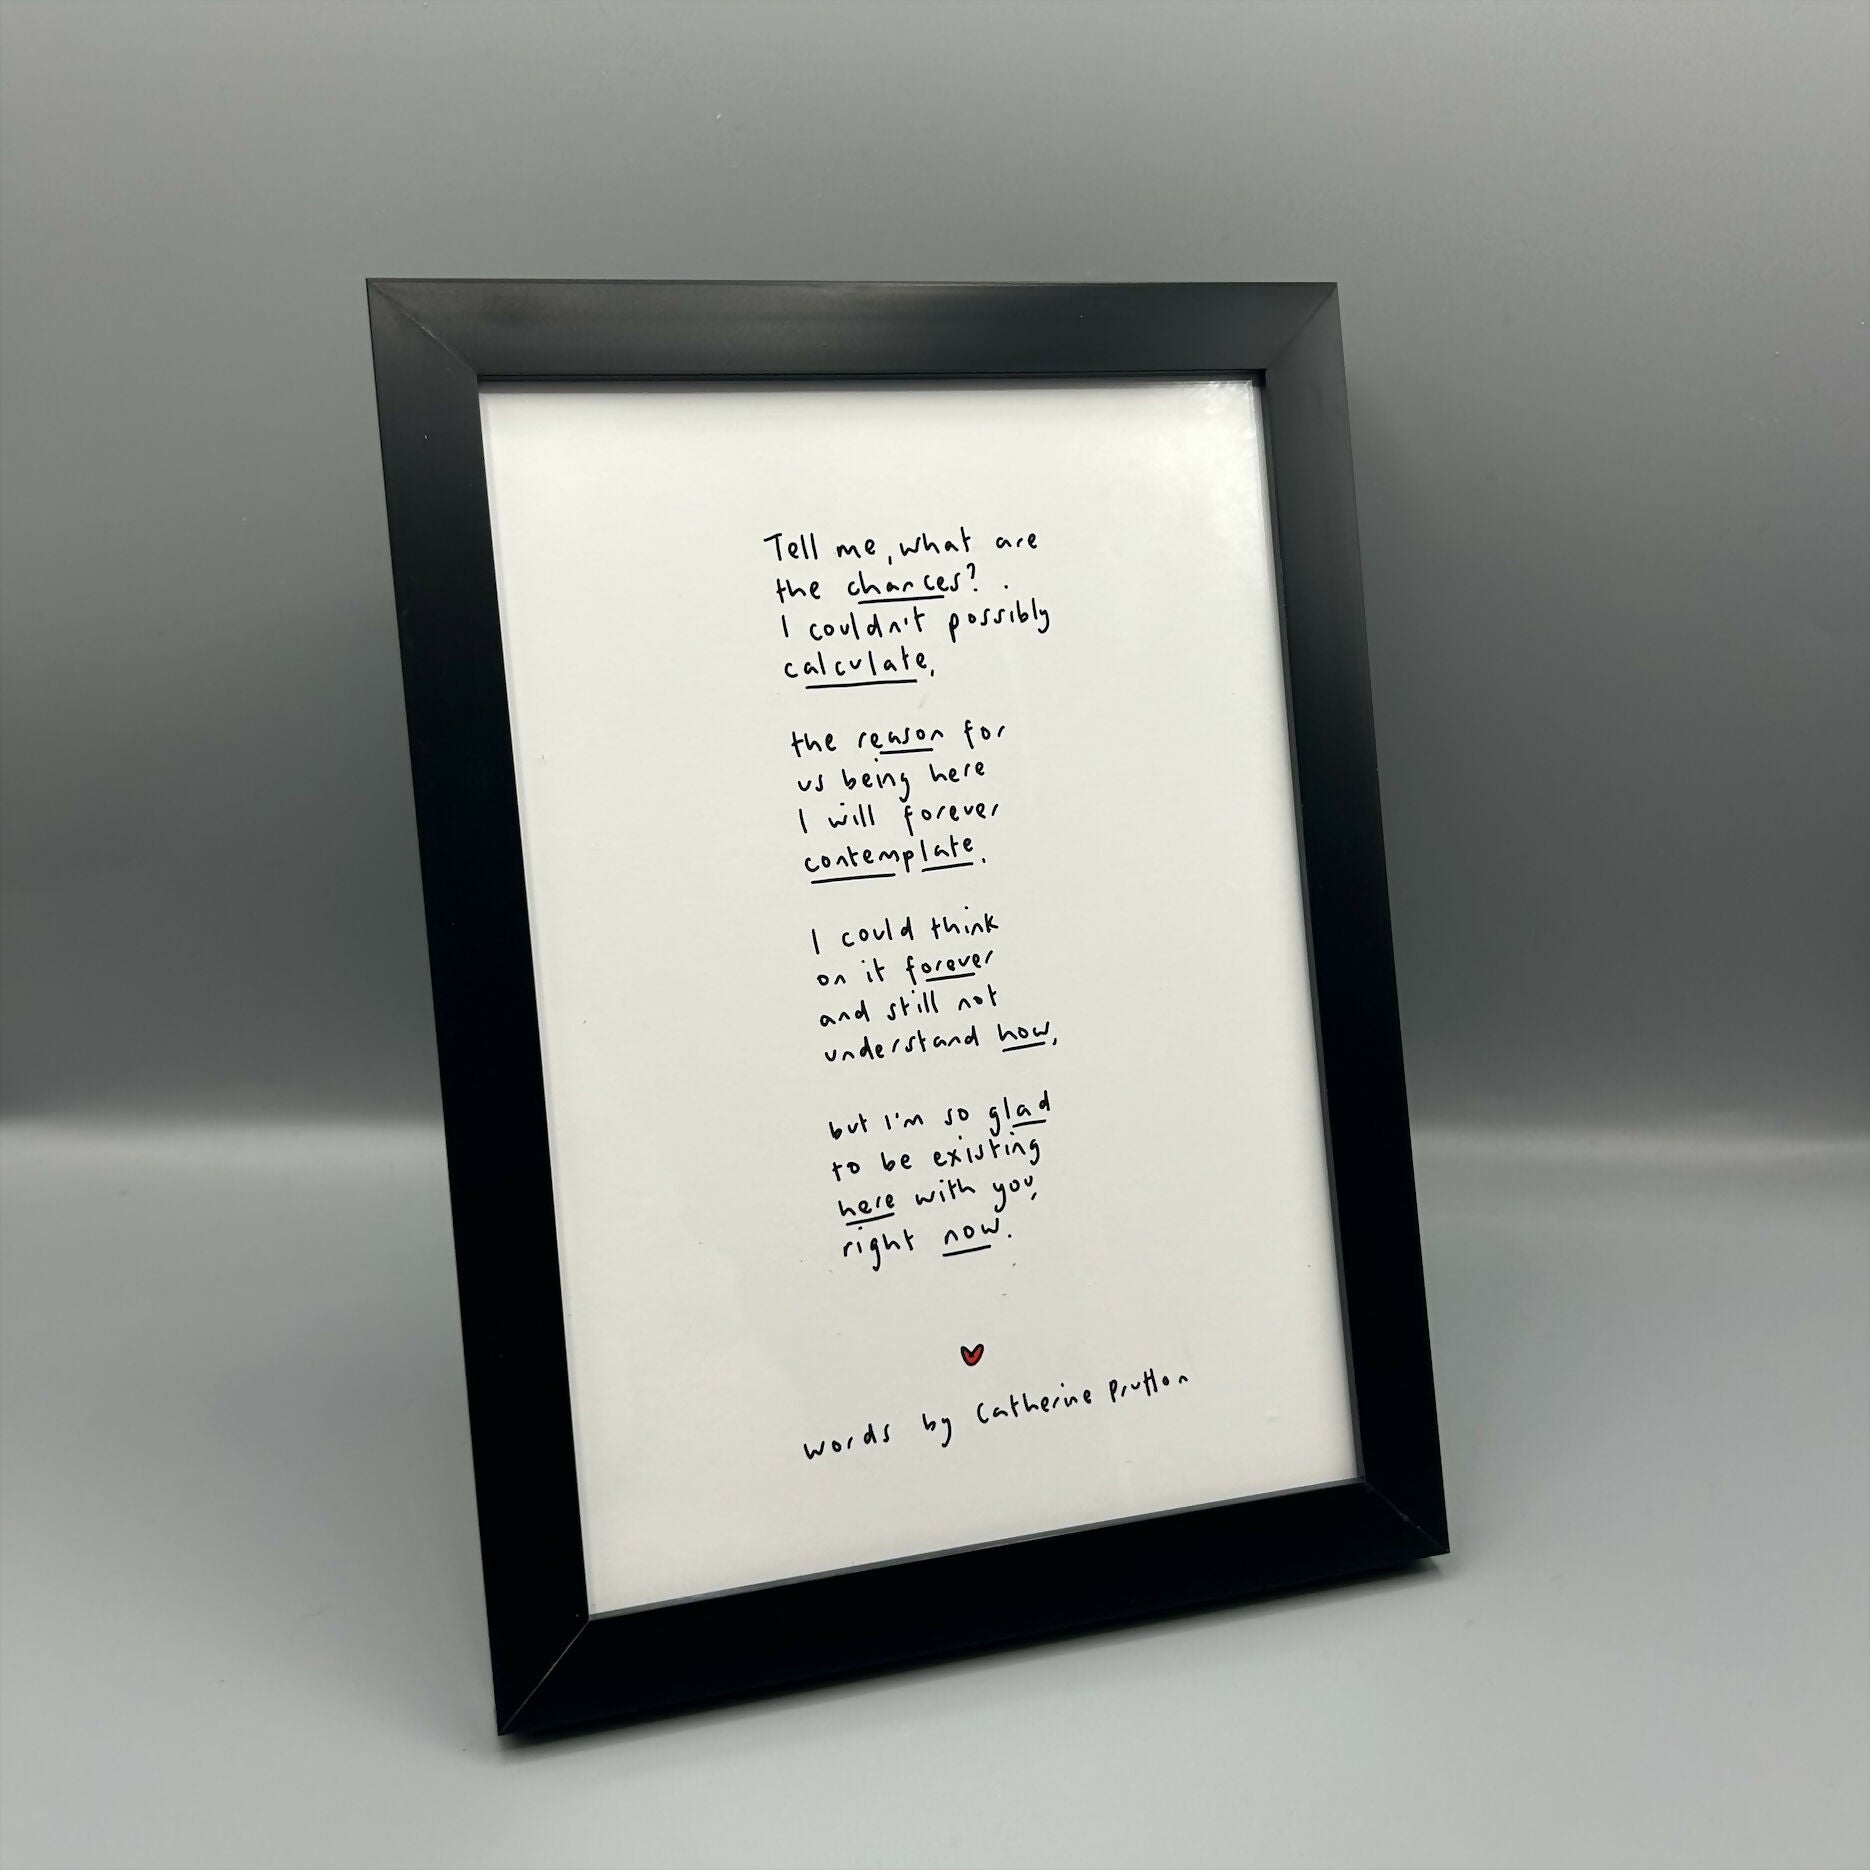 Tell me, what are
the chances?
I couldn't possibly
calculate,
the reason for
us being here
I will forever
contemplate.
I could think
on it forever
and still not
understand how,
but I'm so glad
to be existing
here with you,
right now.
words by Catherine Prutton